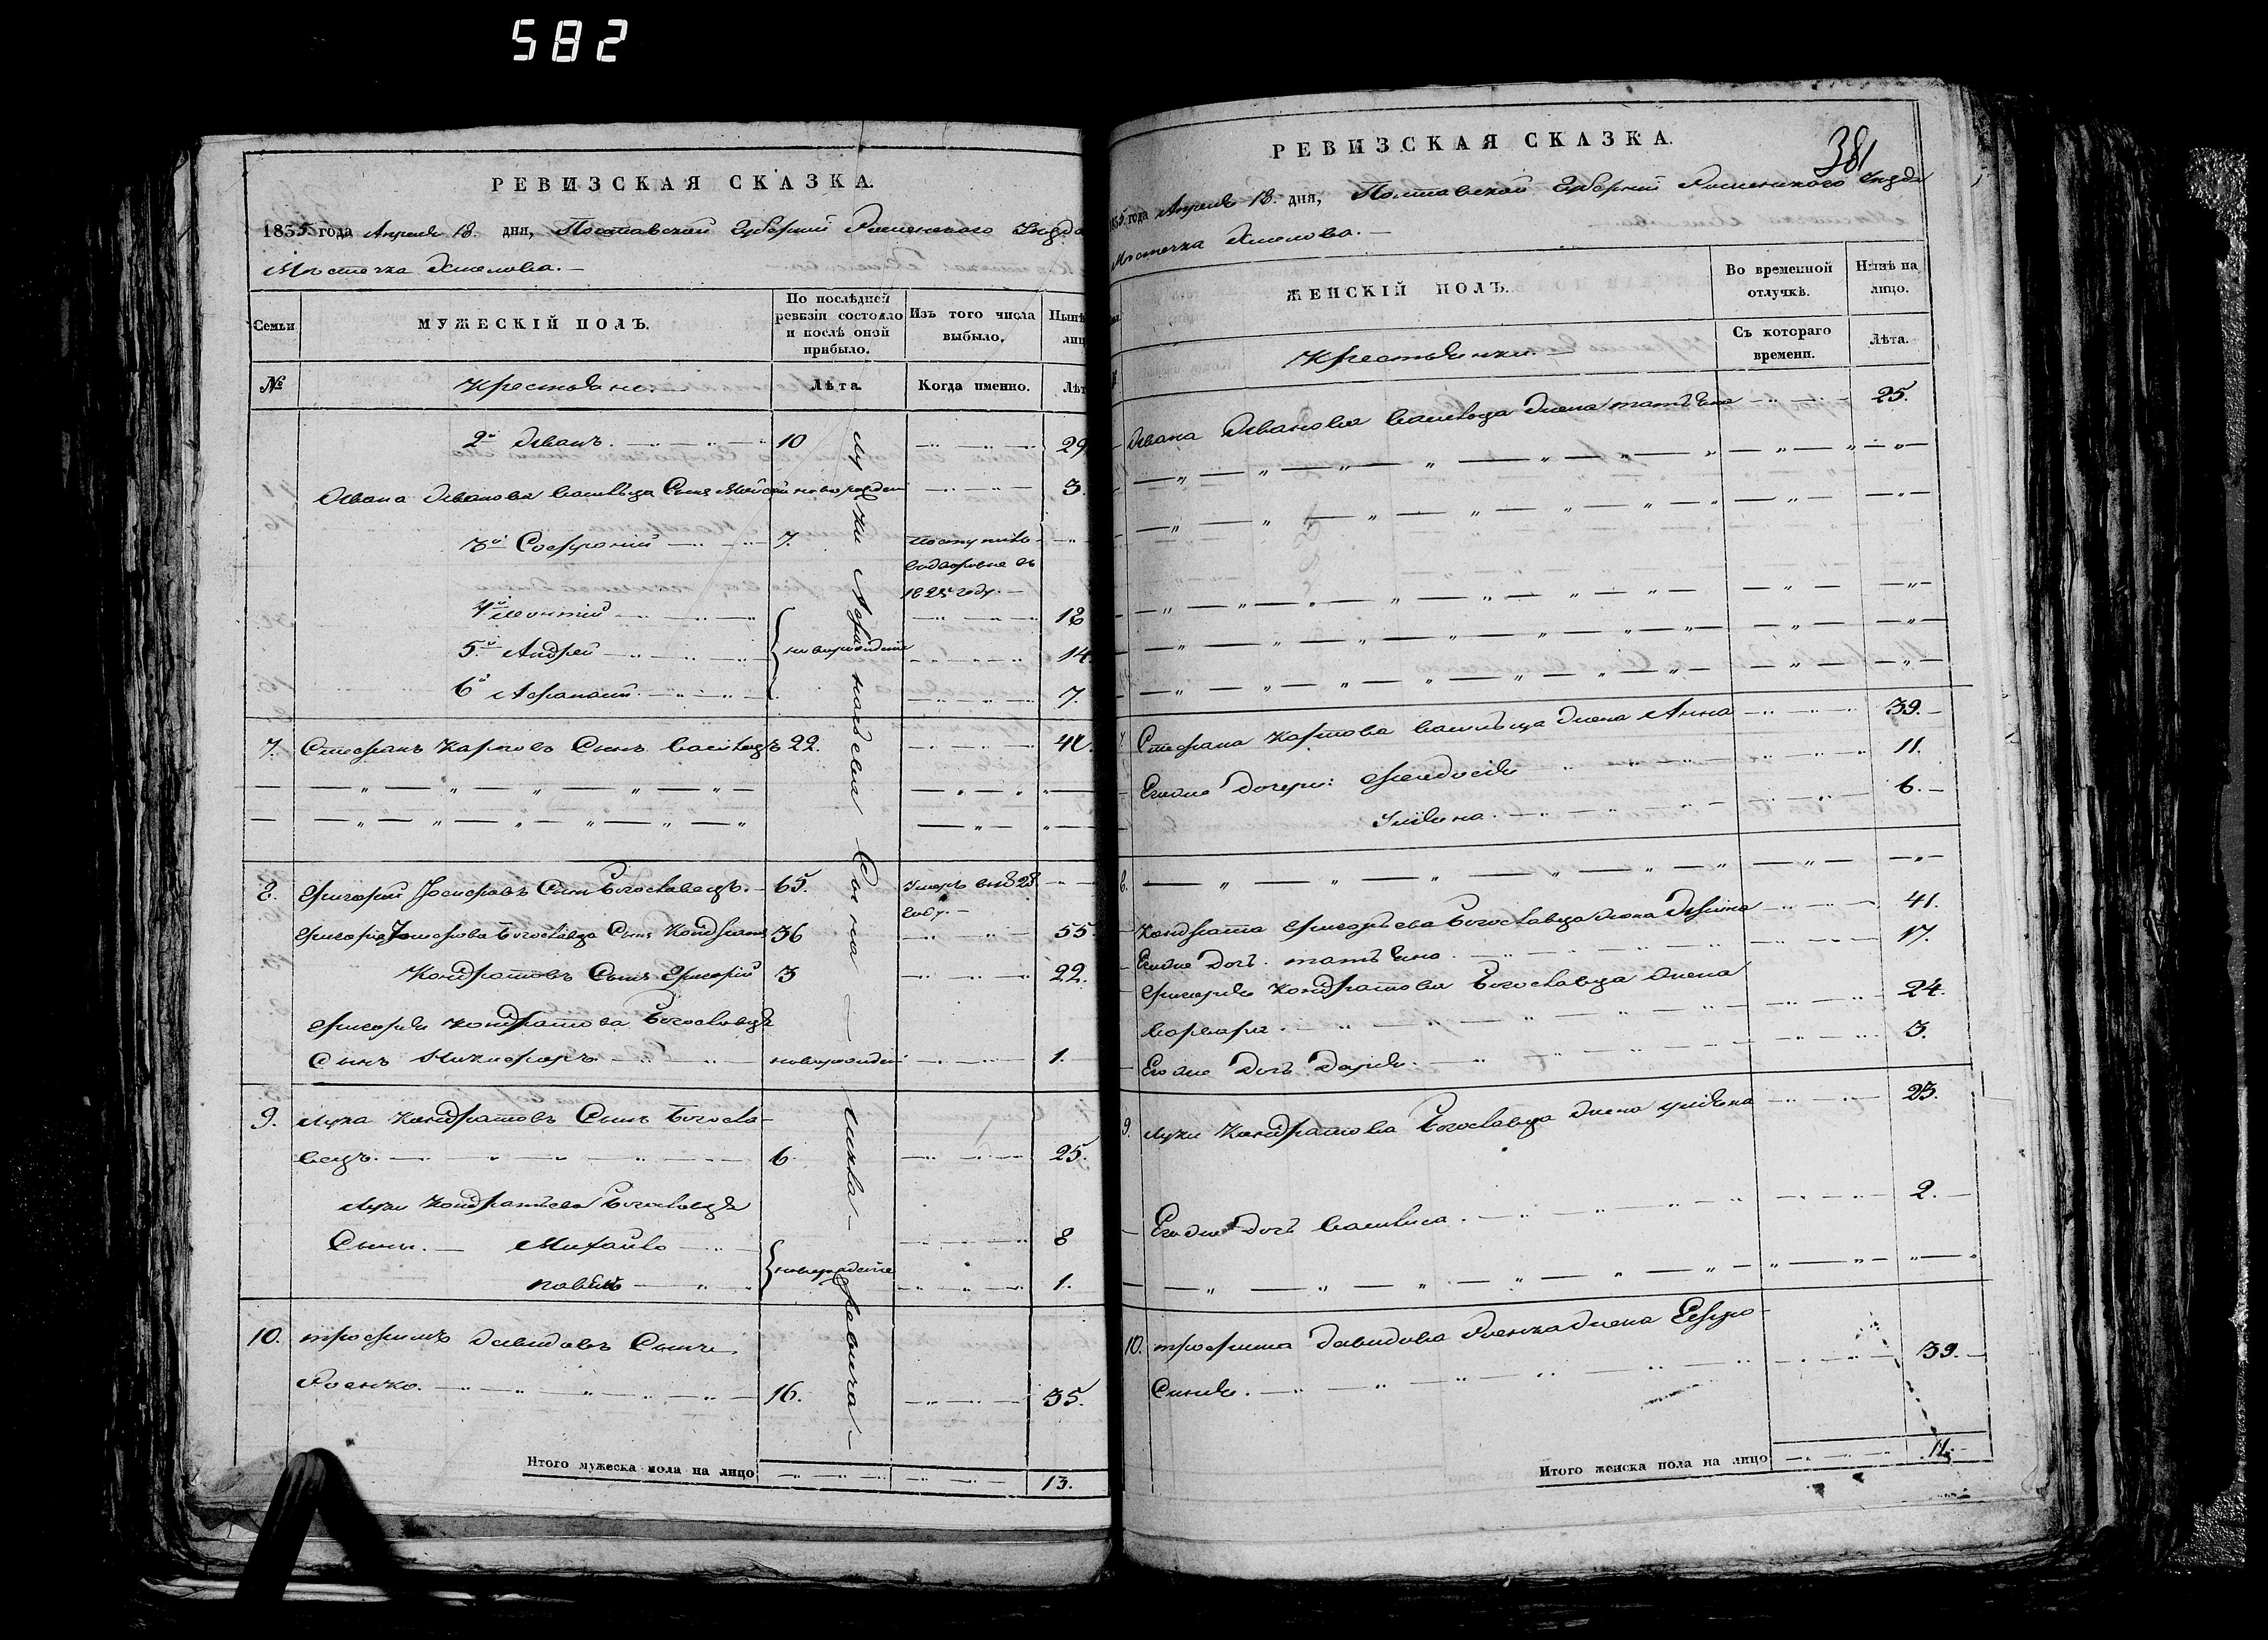 582
РЕВИЗСКАЯ СКАЗКА.
1835 года Апреля 18. дня, Полтавской Губернии Роменского Уезда
Местечка Хмелова.—
Семьи
МУЖЕСКІЙ ПОЛЪ.
По послѣдней ревизіи состояло и послѣ оной прибыло.
Изъ того числа выбыло.
Нынѣ
лиц
№
Крестьяне.
Лѣта.
Когда именно.
Лѣт
2й Иванъ. 10 29
Ивана Иванова Сынъ Мойсей новорожден 3.
3й Софроний 7.
1825 году.
4й Леонтий 18
5й Андрей новорожденые 14
6й Афанасий 7.
7. Стефанъ Карповъ Сынъ 22. 41.
8. Григорий Иосифовъ Сынъ Богославецъ. 65. Умеръ в 1828 году.—
Григория Иосифова Богославца Сынъ Кондратъ 36 55
Кондратовъ Сынъ Григорий 3 22.
Григория Кондратова Богославца
Сынъ Никифоръ новорожден 1.
9. Лука Кондратовъ Сынъ Богосла-
вецъ. 6 25.
Луки Кондратьева Богославца
Сыны.— Михайло 8
Павелъ новорожденые 1.
10. Трофимъ Давидовъ Сынъ
Роенко. 16. 35.
Итого мужеска пола на лицо 13.
Луки Афанасьева Сына —
РЕВИЗСКАЯ СКАЗКА.
381
1835 года Апреля 18. дня, Полтавской Губернии Роменского Уезда
Местечка Хмелова.—
ЖЕНСКІЙ ПОЛЪ.
Во временной отлучкѣ.
Нынѣ на лицо.
Крестьянки.—
Съ котораго времени.
Лѣта.
Ивана Иванова жена Татьяна 25.
Стефана Карпова жена Анна 39.
Егоже дочери: Феодосия 11.
Улияна. 6.
8.
Кондрата Григорьева Богославца жена 41.
Егоже дочь Татьяна 17.
Григория Кондратова Богославца жена
24.
Егоже Дочь Дария. 3.
9. Луки Кондратова Богославца жена Улияна 23.
Егоже Дочь Василиса. 2.
10. Трофима Давидова Роенка жена Ефро-
синия. 39.
Итого женска пола на лицо 11.